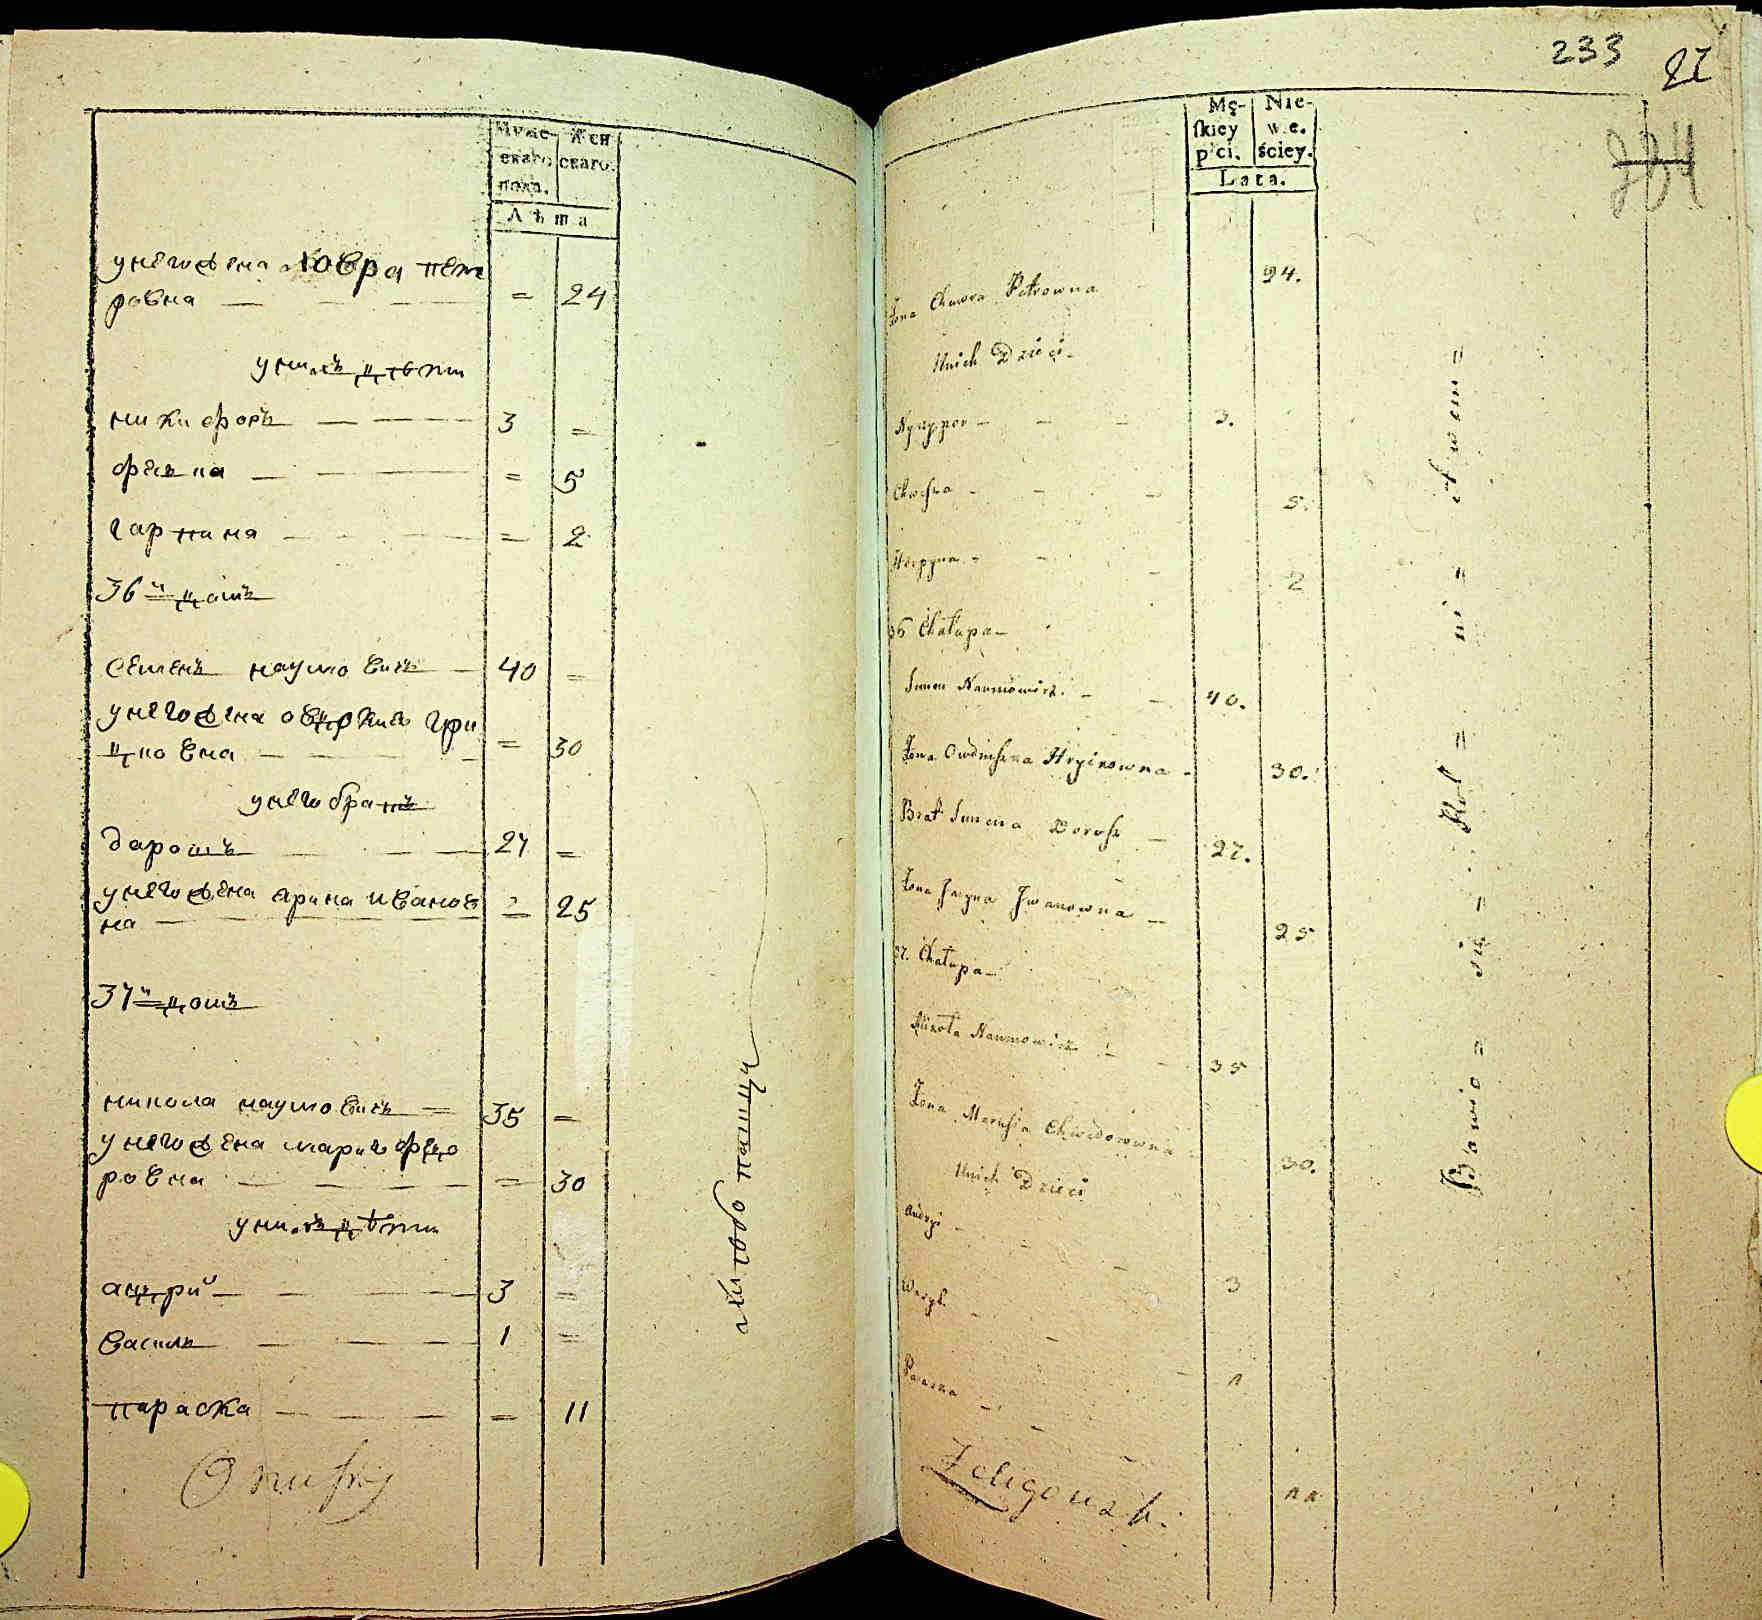 Муже-
скаго
пола.
Жен
скаго.
Лѣта
унего жена ховра пет
ровна — = 24
унихъ дѣти
никифоръ — 3 =
фенка — = 5
гарпина — = 2
36й домъ
семенъ наумовичъ — 40 =
унего жена овдокия гри
цковна — = 30
унего братъ
дарошъ — 27 =
унего жена арина иванов
на — = 25
37й домъ
никола наумовичъ — 35 =
унего жена мария федо
ровна — = 30
унихъ дѣти
андрий — 3 =
василь — 1 =
параска — = 11
233
27
234
Mę-
skiey
płci.
Nie-
we.
ściey.
Lata.
Żona Chwora Petrowna 24.
Unich Dzieci
Nyczypor — 3.
Chweska — 5.
Harpyna — 2
36 Chałupa
Semen Naumowicz — 40.
Żona Owdiuszka Hryckowna 30.
Brat Semena Dorosz — 27.
Żona Jaryna Jwanowna — 25
37. Chałupa
Mikoła Naumowicz — 35
Żona Marusia Chwedorowna 30.
Unich Dzieci
Andrzy — 3
Wasyl — 1
Paraska — 11
Żeligowski